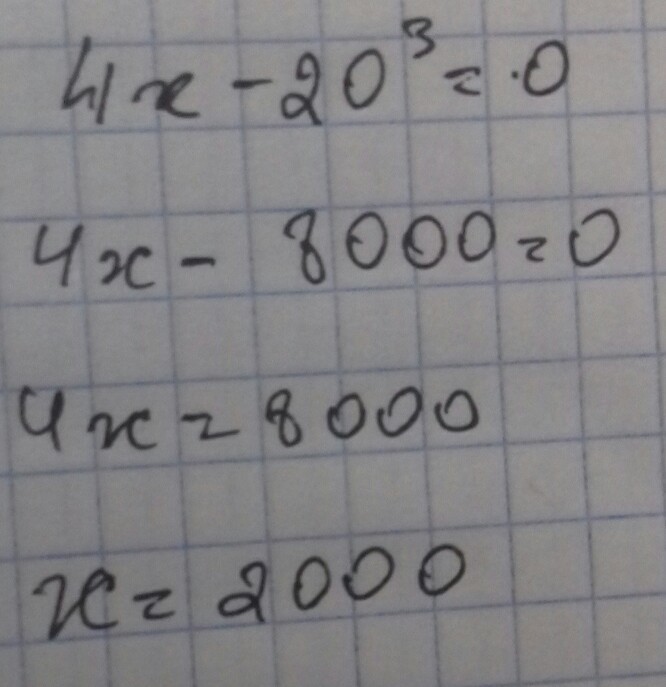 4x - 20³ = 0
4x - 8000 = 0
4x = 8000
x = 2000